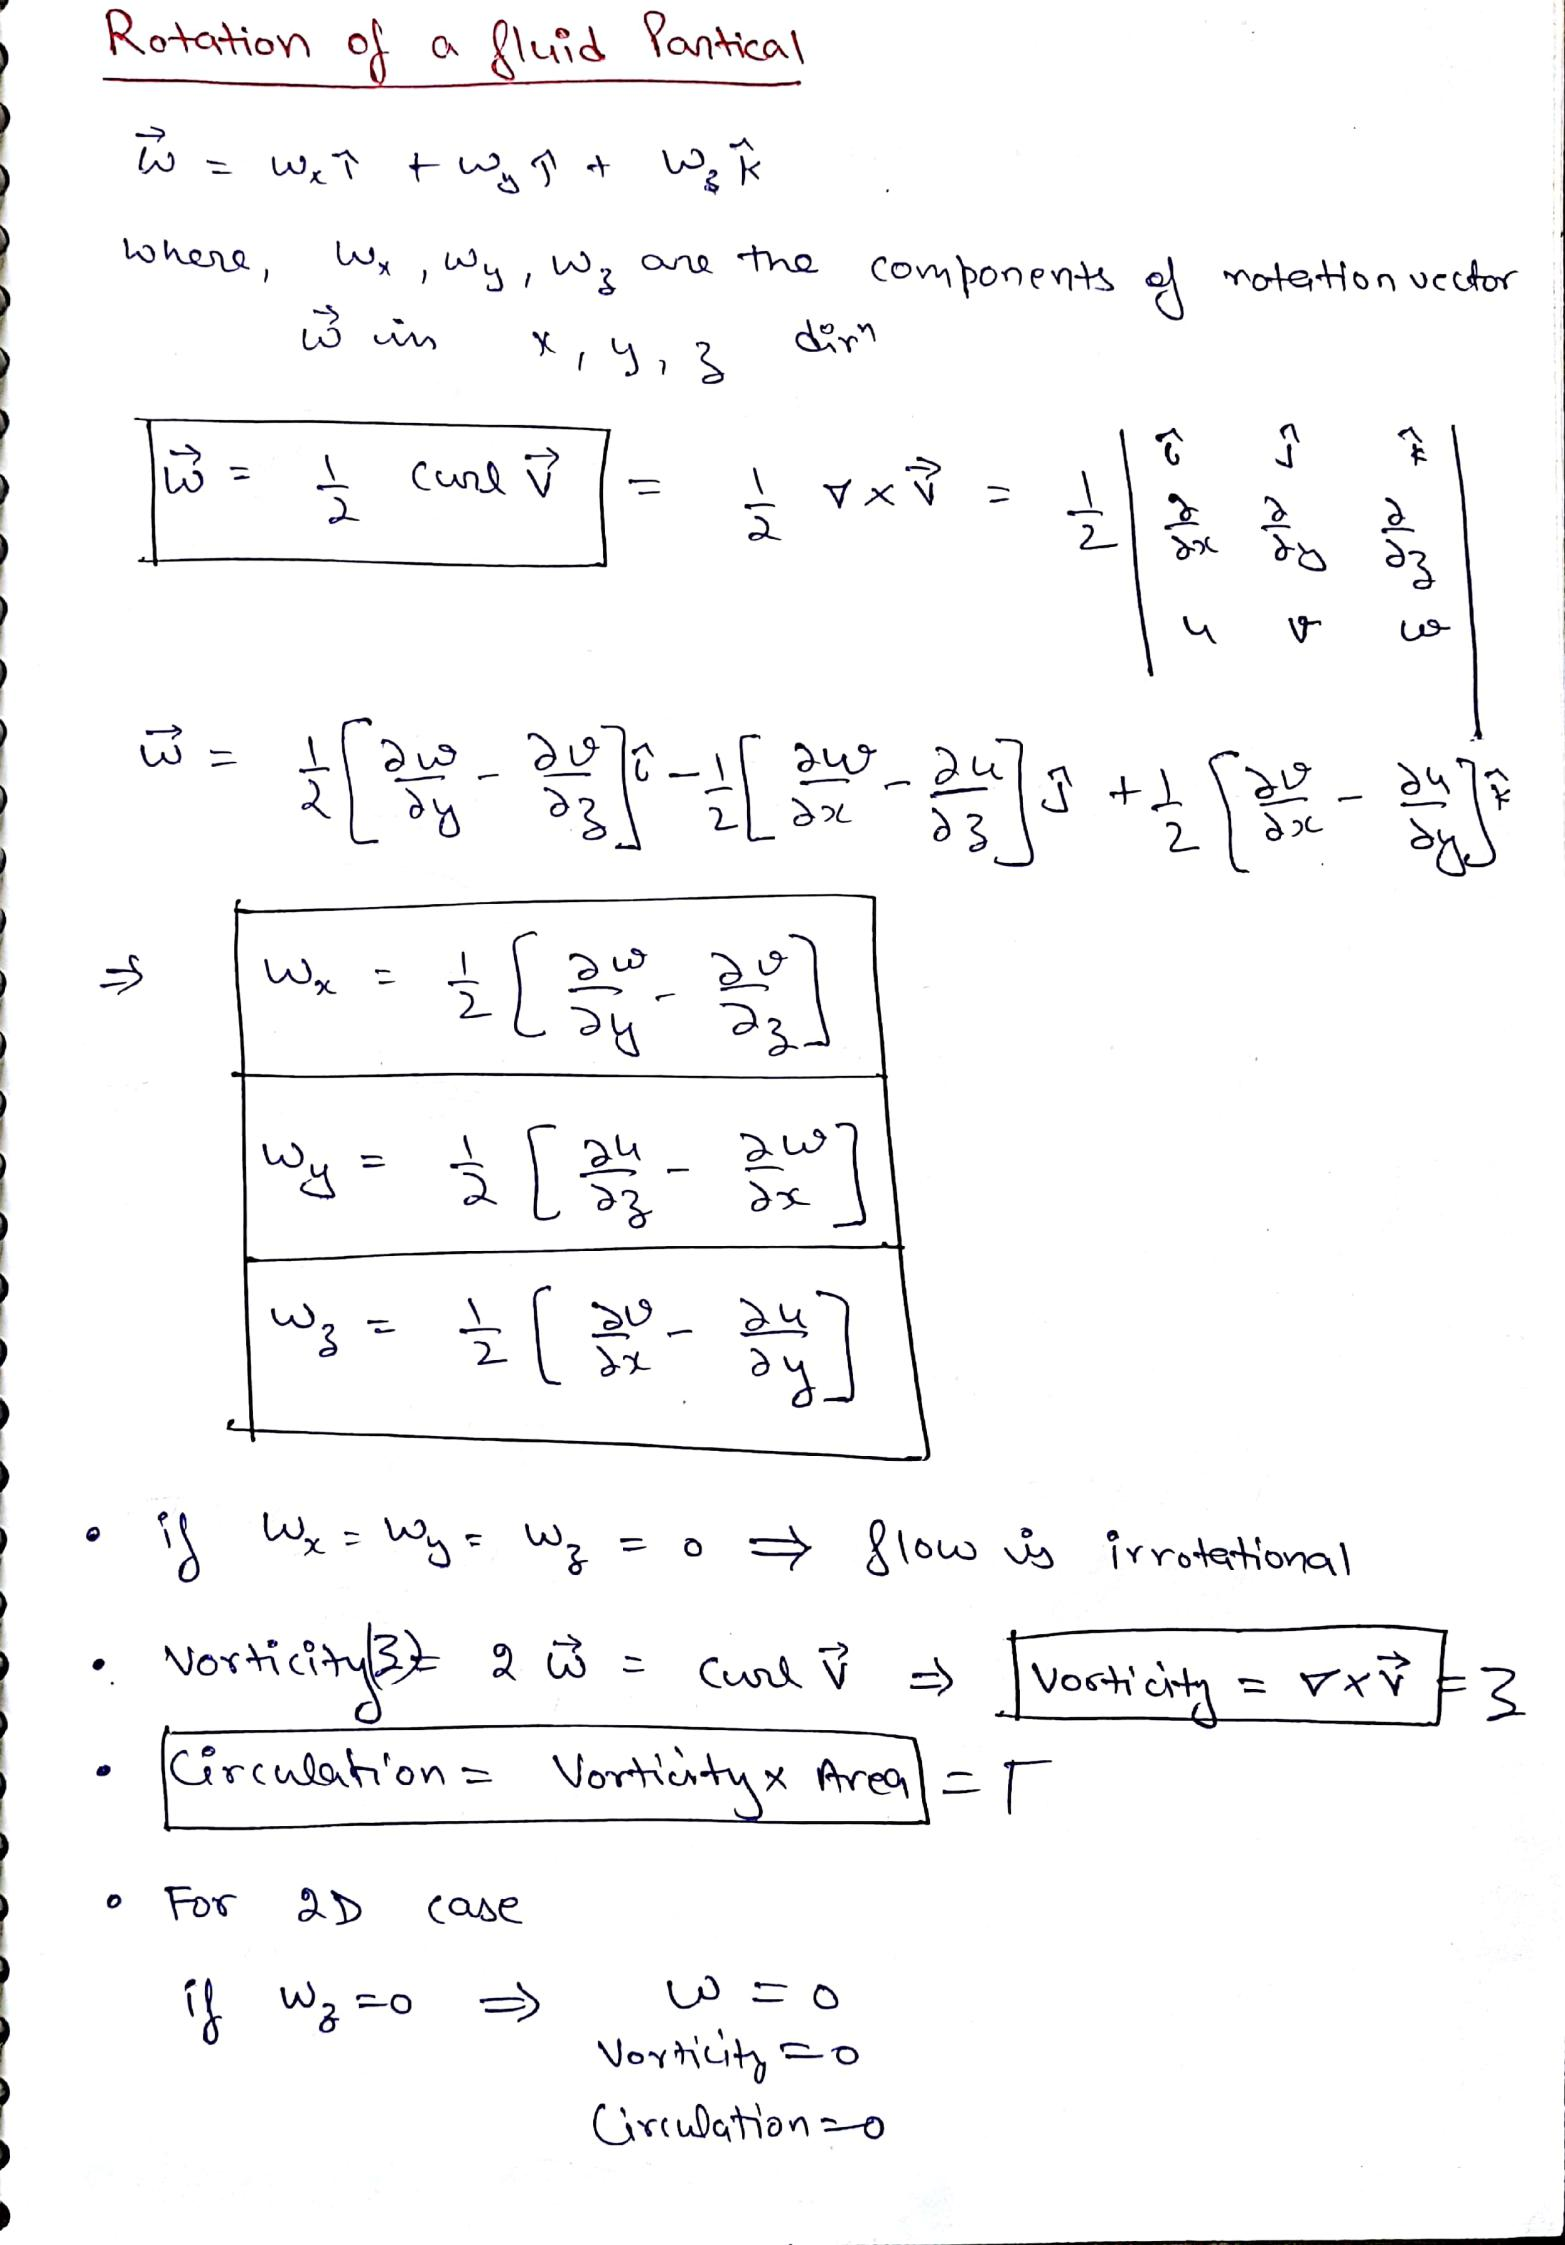 Rotation of a fluid Partical
w⃗ = wₓ î + w_y ĵ + w_z k̂
where, wₓ, w_y, w_z are the components of rotation vector
w⃗ in x, y, z dirⁿ
w⃗ = 1/2 curl V⃗ = 1/2 ∇×V⃗ = 1/2 | î ĵ k̂ |
| ∂/∂x ∂/∂y ∂/∂z |
| u v w |
w⃗ = 1/2 [∂w/∂y - ∂v/∂z] î - 1/2 [∂w/∂x - ∂u/∂z] ĵ + 1/2 [∂v/∂x - ∂u/∂y] k̂
⇒ wₓ = 1/2 [∂w/∂y - ∂v/∂z]
w_y = 1/2 [∂u/∂z - ∂w/∂x]
w_z = 1/2 [∂v/∂x - ∂u/∂y]
• if wₓ = w_y = w_z = 0 ⇒ flow is irrotational
• Vorticity(ʒ) = 2 w⃗ = curl V⃗ ⇒ Vorticity = ∇×V⃗ = ʒ
• Circulation = Vorticity × Area = Γ
• For 2D case
if w_z = 0 ⇒ w = 0
Vorticity = 0
Circulation = 0